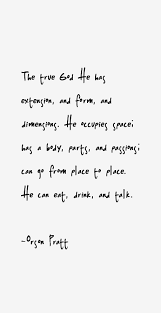 The true God He has
extension, and form, and
dimensions. He occupies space;
has a body, parts, and passions;
can go from place to place.
He can eat, drink, and talk.
-Orson Pratt